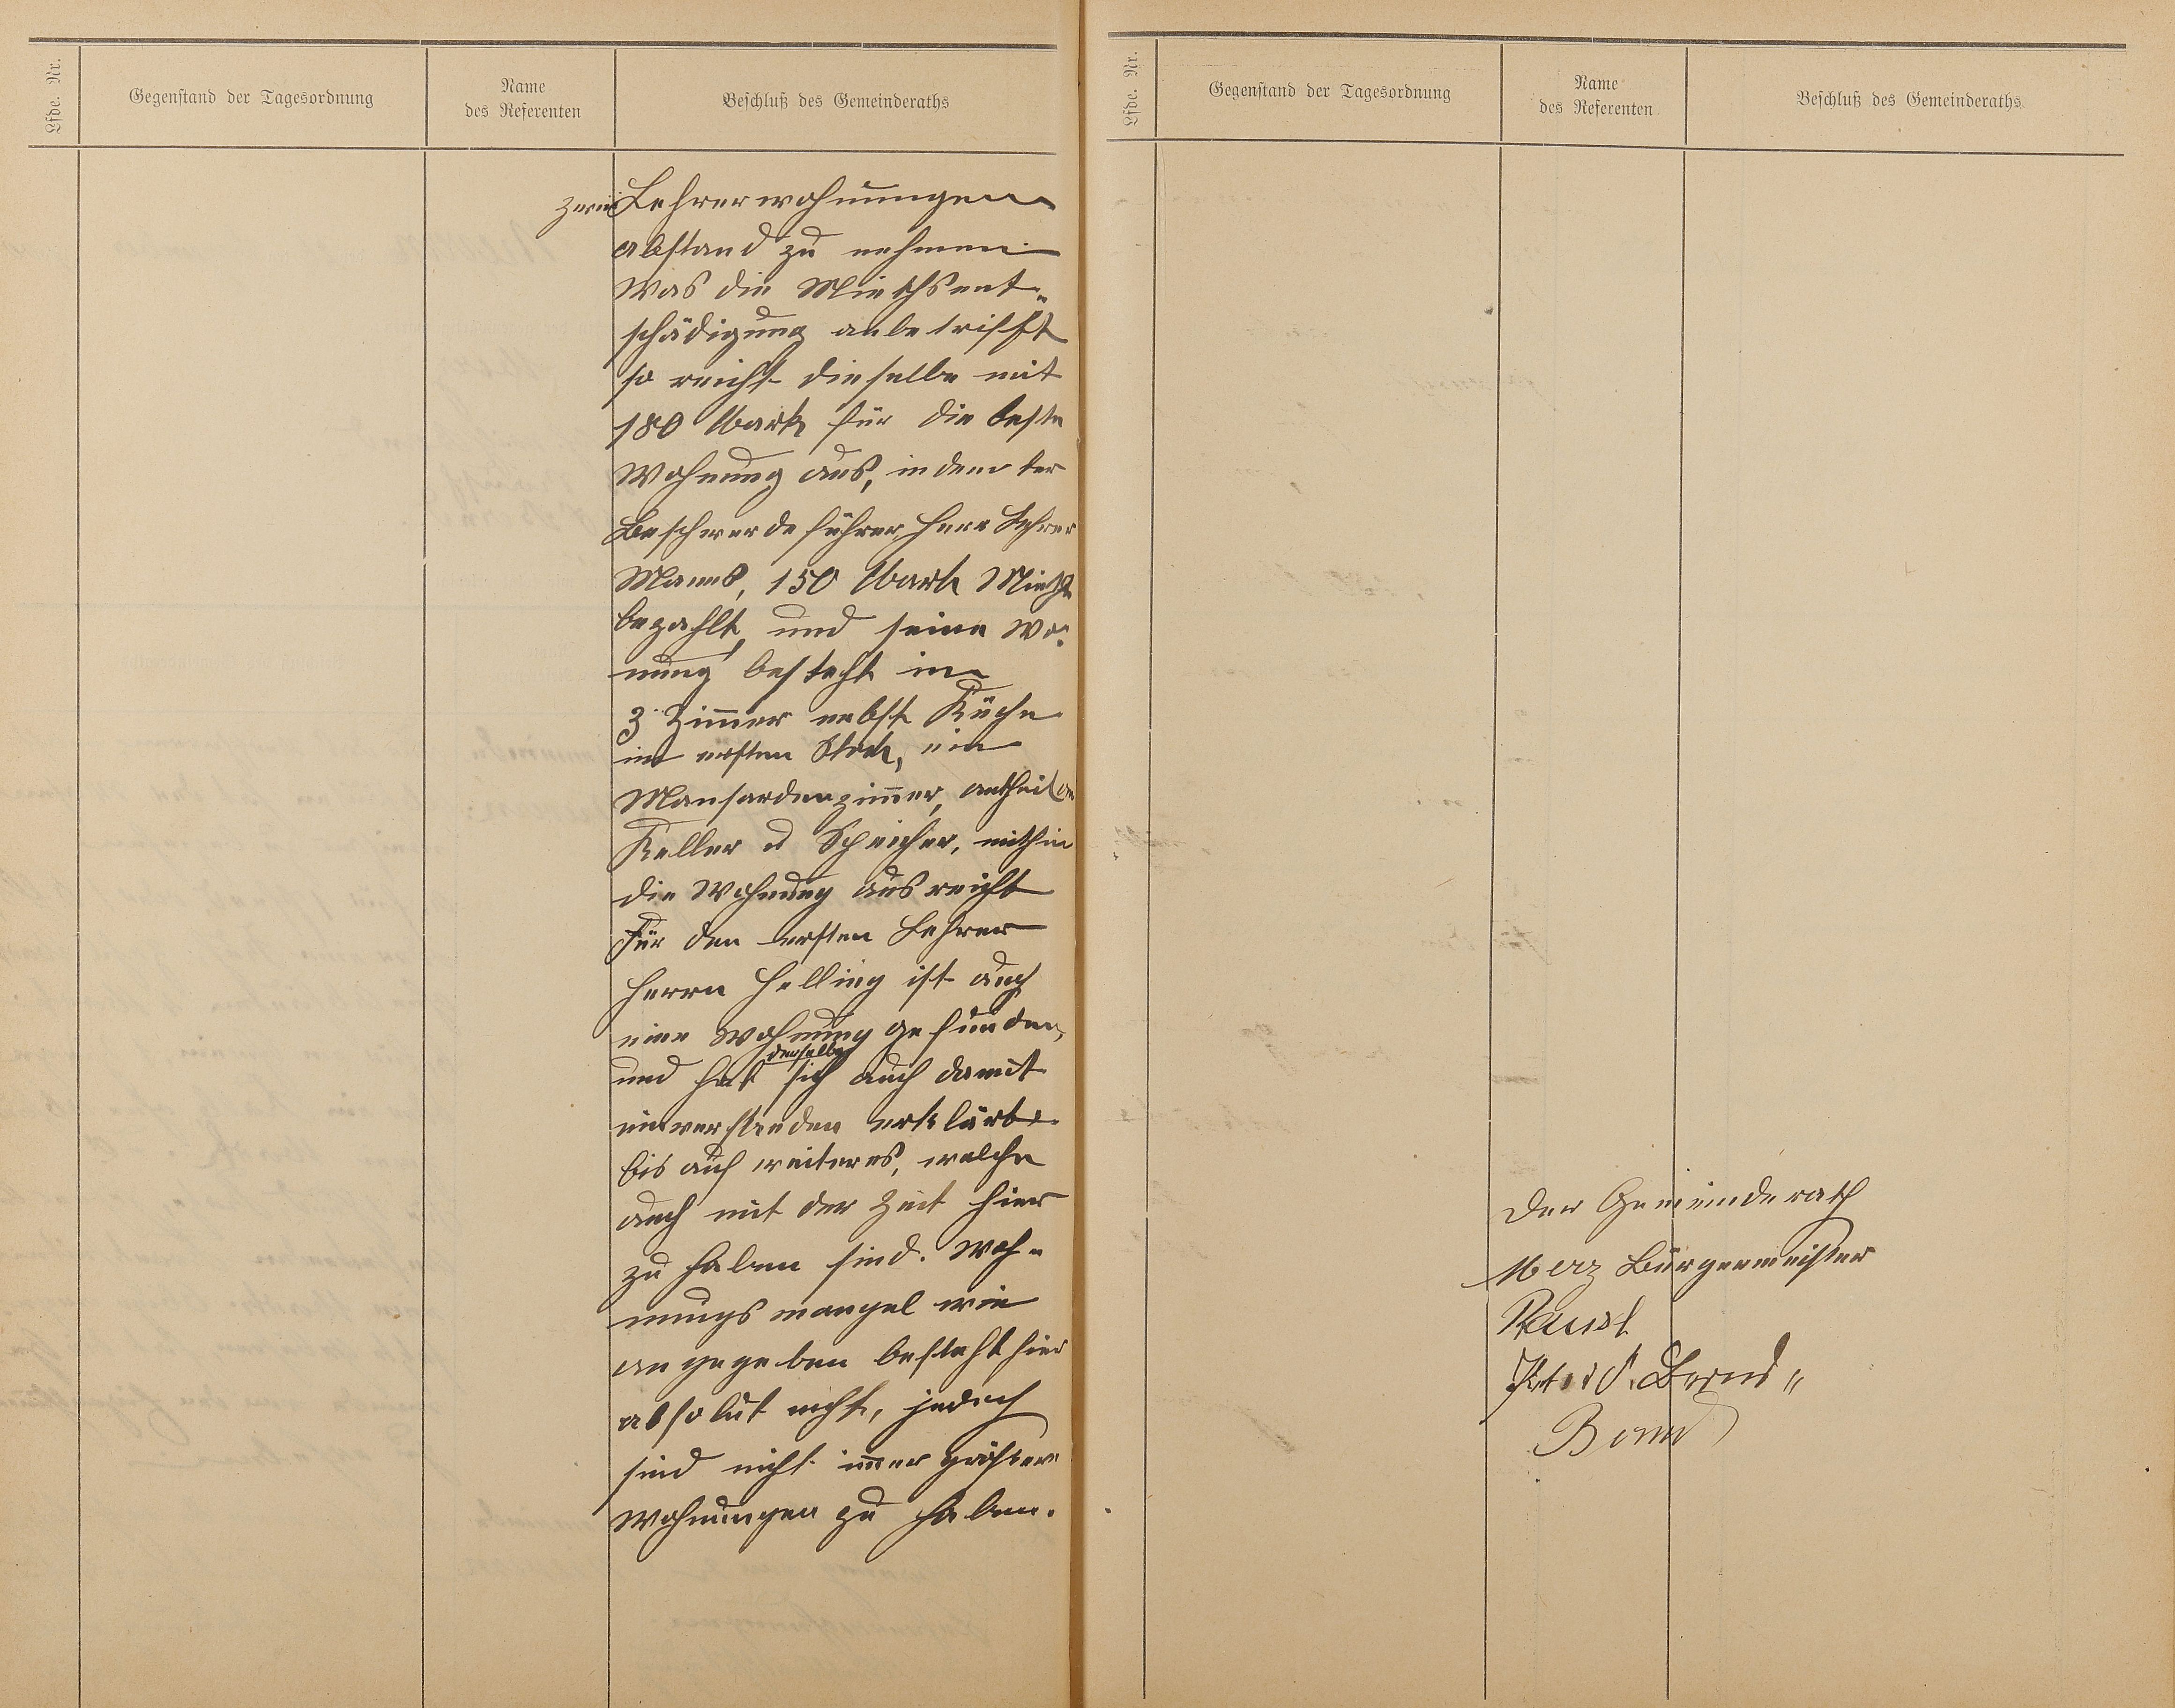 Lfde. Nr.
Gegenstand der Tagesordnung
Name
des Referenten
Beschluß des Gemeinderaths
zwei Lehrerwohnungen
abstand zu nehmen.
Was die Miethsent-
schädigung anbetrifft
so reicht dieselbe mit
180 Mark für die beste
Wohnung aus, in dem der
Beschwerdeführer, Herr Lehrer
150 Mark Miethe
bezahlt, und seine Wo-
nung besteht in
3 Zimmer nebst Küche
im ersten Stock, ein
Mansardenzimmer, antheil am
Keller u Speicher, mithin
die Wohnung ausreicht
Für den ersten Lehrer
Herrn Helling ist auch
eine Wohnung gefunden,
und hat derselbe sich auch damit
einverstanden erklärt
bis auf weiteres, welche
auch mit der Zeit hier
zu haben sind. Woh-
nungsmangel wie
angegeben besteht hier
absolut nicht, jedoch
sind nicht immer größere
Wohnungen zu haben.
Lfde. Nr.
Gegenstand der Tagesordnung
Name
des Referenten
Beschluß des Gemeinderaths
Der Gemeinderath
Merz Bürgermeister